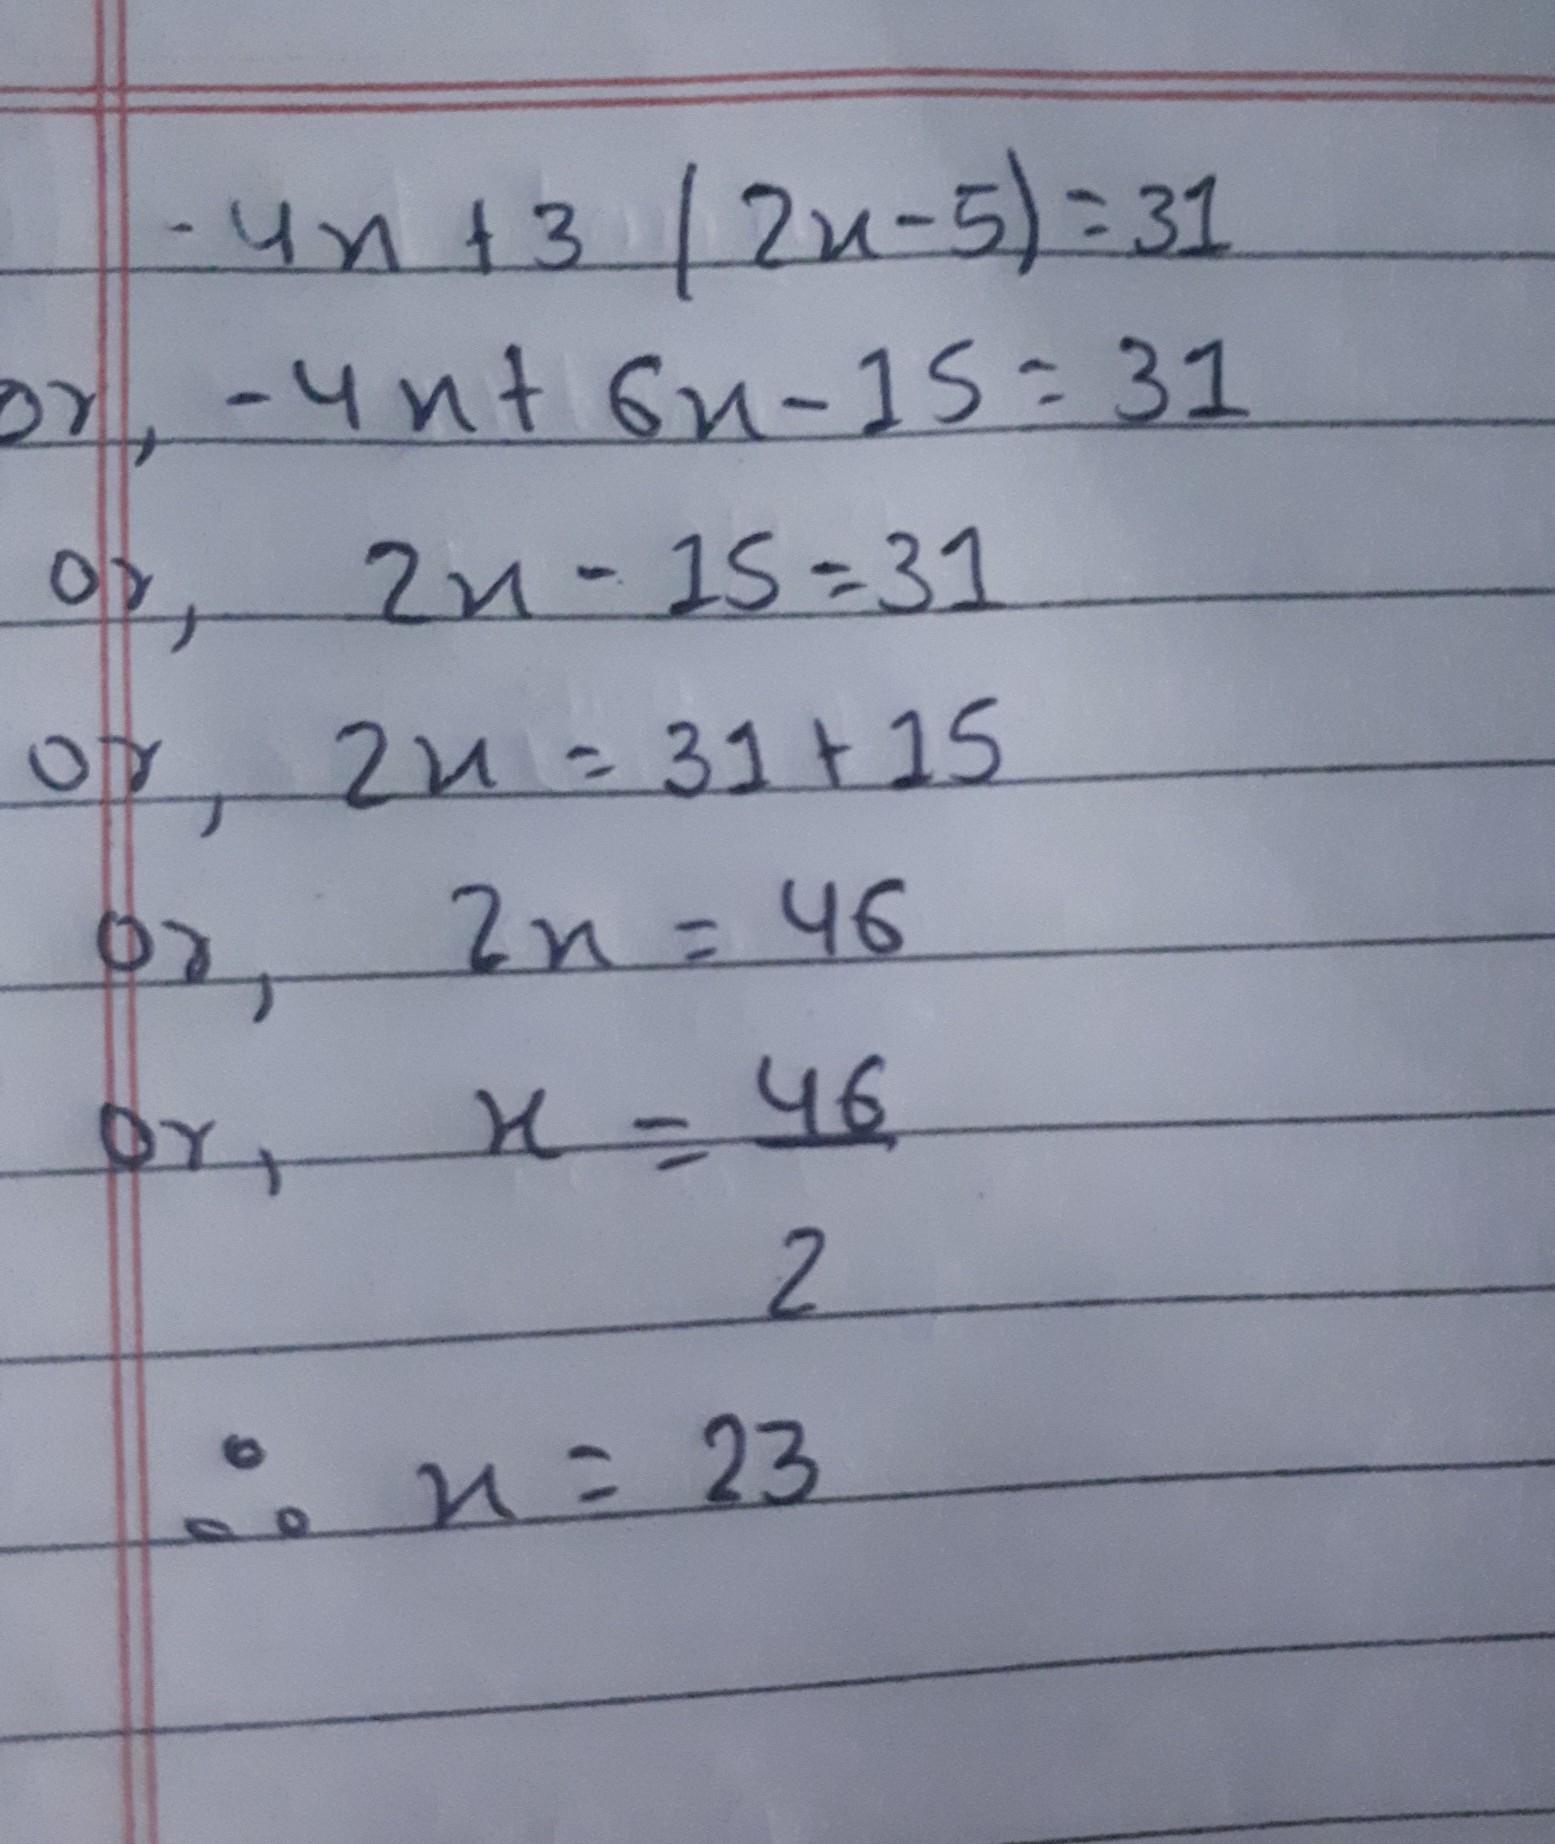 -4x + 3 (2x-5) = 31
or, -4x + 6x - 15 = 31
or, 2x - 15 = 31
or, 2x = 31 + 15
or, 2x = 46
or, x = 46
2
∴ x = 23